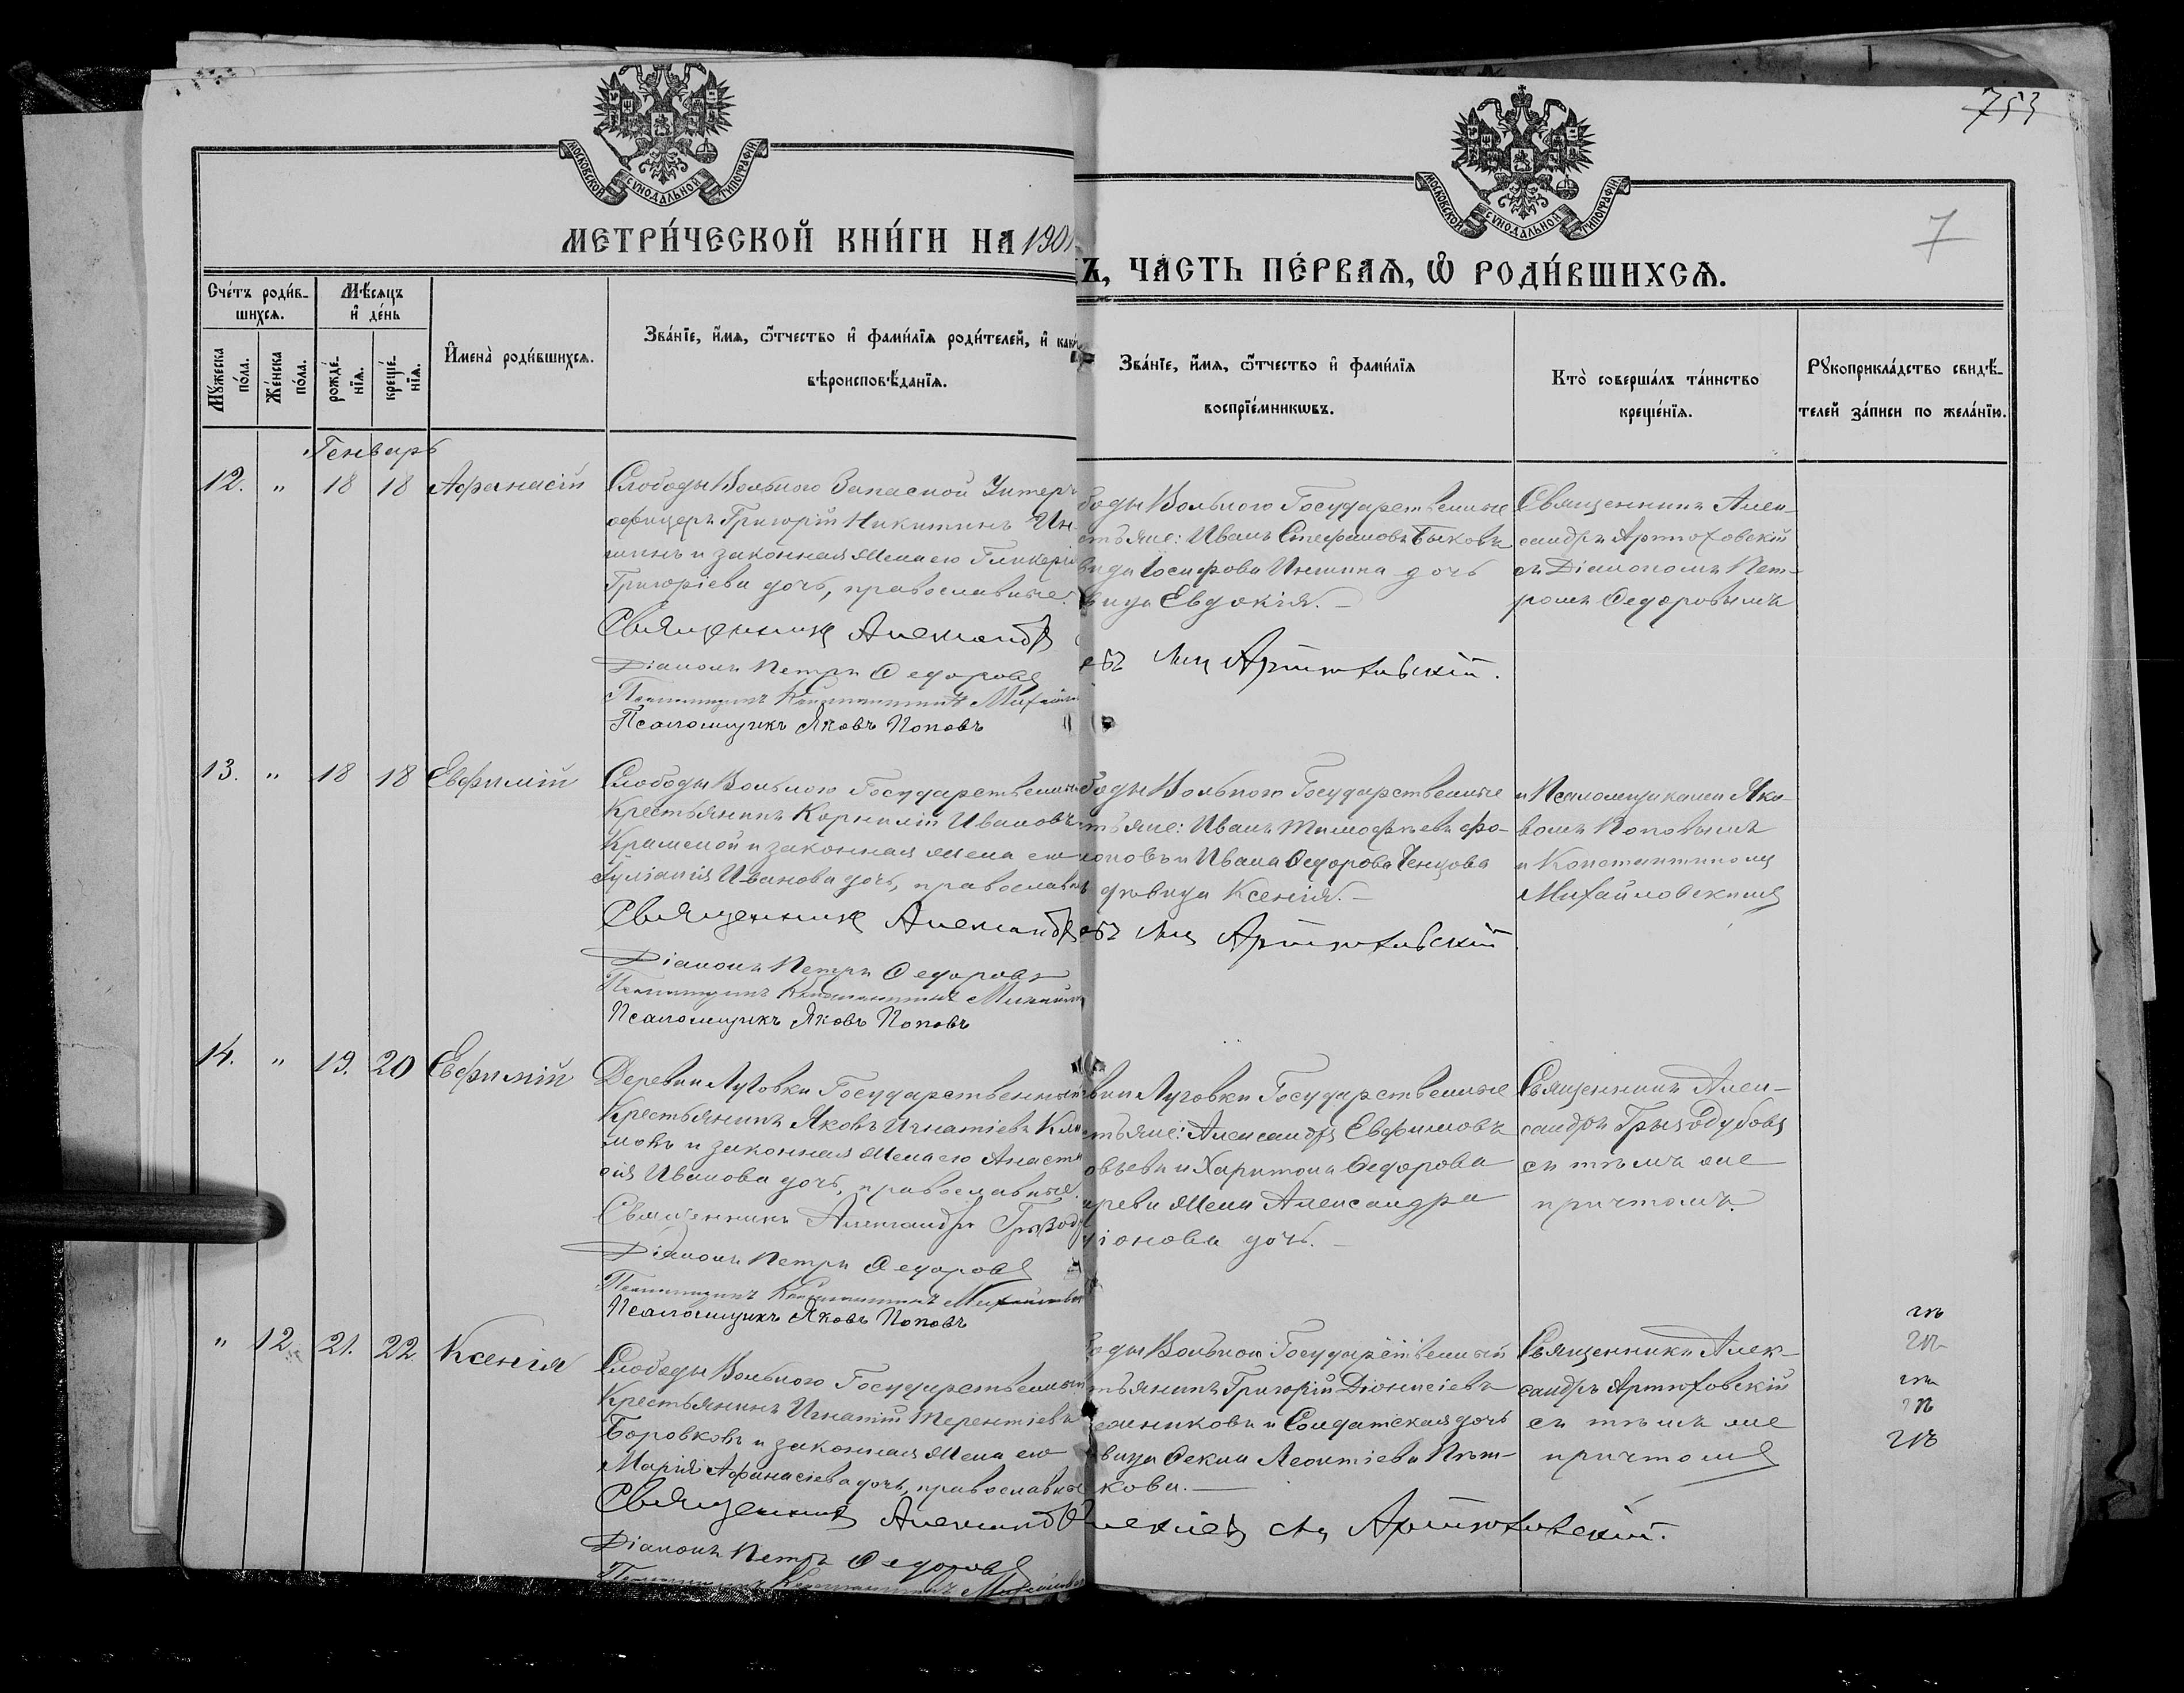 753
7
МОСКОВСКОЙ СѴНОДАЛЬНОЙ ТИПОГРАФІИ
МОСКОВСКОЙ СѴНОДАЛЬНОЙ ТИПОГРАФІИ.
МЕТРИ́ЧЕСКОЙ КНИ́ГИ НА 1901
Ъ, ЧА́СТЬ ПЕ́РВАѦ, Ѡ҆ РОДИ́ВШИХСѦ.
Сче́тъ роди́в-
шихсѧ.
Мѣ́сѧцъ
и҆ де́нь
Мꙋ́жеска по́ла.
Же́нска по́ла.
рожде́-нїѧ.
креще́-нїѧ.
И҆мена̀ роди́вшихсѧ.
Зва́нїе, и҆́мѧ, ѻ҆́тчество и҆ фами́лїѧ роди́телей, и҆
вѣроисповѣ́данїѧ.
Зва́нїе, и҆́мѧ, ѻ҆́тчество и҆ фами́лїѧ
воспрїе́мникѡвъ.
Кто̀ соверша́лъ та́инство
креще́нїѧ.
Рꙋкоприкла́дство свидѣ́-
телей за́писи по жела́нїю.
Генварь
12. " 18 18 Афанасій
Слободы Вольного Запасной Унтеръ
офицеръ Григорій Никитинъ
шинъ и законная жена его Гликері
Григоріева дочь, православные.
Священникъ Александръ
Діаконъ Петръ Ѳедоровъ
Псаломщикъ Константинъ
Псаломщикъ Яковъ Поповъ
боды Вольного Государственные
стьяне: Иванъ Стефановъ Быковъ
вица Іосифова Иншина дочь
вица Евдокія. –
Артюховскій.
Священникъ Алек-
сандръ Артюховскій
съ Діакономъ Пет-
ромъ Ѳедоровымъ
13. " 18 18 Евфимій
Слободы Вольного Государственный
Крестьянинъ Корнилій Ивановъ
и законная жена его
Іуліанія Иванова дочь, православн
Священникъ Александръ
Діаконъ Петръ Ѳедоровъ
Псаломщикъ Константинъ
Псаломщикъ Яковъ Поповъ
боды Вольного Государственные
стьяне: Иванъ Тимофѣевъ
и Ивана Ѳедорова Ченцова
дѣвица Ксенія. –
Артюховскій
и Псаломщиками Яко-
вомъ Поповымъ
и Константиномъ
Михайловскимъ
14. " 19. 20 Евфимій
Деревни Луговки Государственный
Крестьянинъ Яковъ Игнатіевъ Кли
мовъ и законная жена его Анаста
сія Иванова дочь, православные.
Священникъ Александръ
Діаконъ Петръ Ѳедоровъ
Псаломщикъ Константинъ
Псаломщикъ Яковъ Поповъ
вни Луговки Государственные
стьяне: Александръ Евфимовъ
и Харитона Ѳедорова
жена Александра
іонова дочь. –
Священникъ Алек-
сандръ Грызодубовъ
съ тѣмъ же
причтомъ.
" 12 21. 22 Ксенія
Слободы Вольного Государственный
Крестьянинъ Игнатій Терентіевъ
Боровковъ и законная жена его
Марія Афанасіева дочь, православные
Священникъ Александръ
Діаконъ Петръ Ѳедоровъ
Псаломщикъ Константинъ
боды Вольного Государственный
стьянинъ Григорій Діонисіевъ
и Солдатская дочь
вица Ѳекла Леонтіева Пѣт-
кова. –
Артюховскій.
Священникъ Алек-
сандръ Артюховскій
съ тѣмъ же
причтомъ